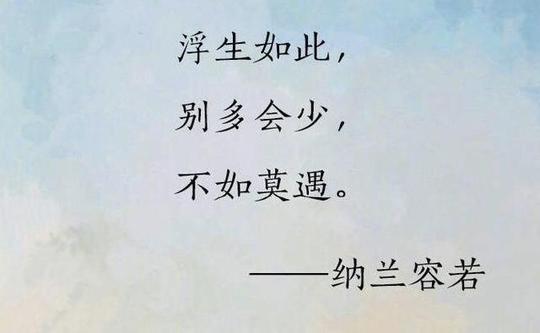 浮生如此，
别多会少，
不如莫遇。
——纳兰容若